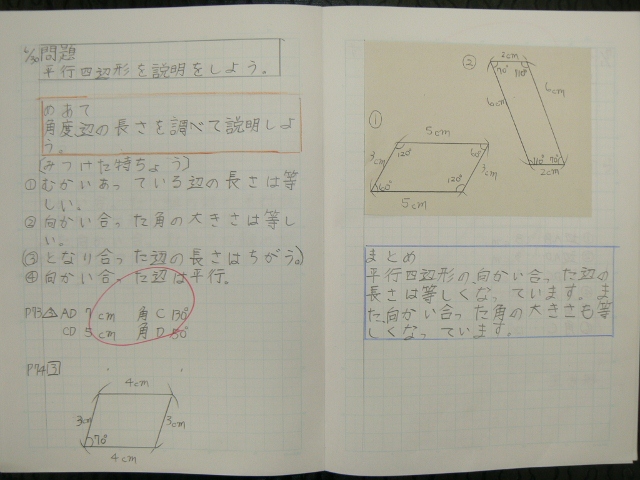 6/30 問題
平行四辺形を説明をしよう。
めあて
角度辺の長さを調べて説明しよ
う。
(みつけた特ちょう)
①むかいあっている辺の長さは等
しい。
②向かい合った角の大きさは等し
い。
(③となり合った辺の長さはちがう。)
④向かい合った辺は平行。
P93 △1 AD 7cm 角C 130°
CD 5cm 角D 50°
P94 3
4cm
3cm 3cm
70°
4cm
①
5cm
120° 60°
3cm 3cm
60° 120°
5cm
②
2cm
70° 110°
6cm 6cm
110° 70°
2cm
まとめ
平行四辺形の、向かい合った辺の
長さは等しくなっています。ま
た、向かい合った角の大きさも等
しくなっています。